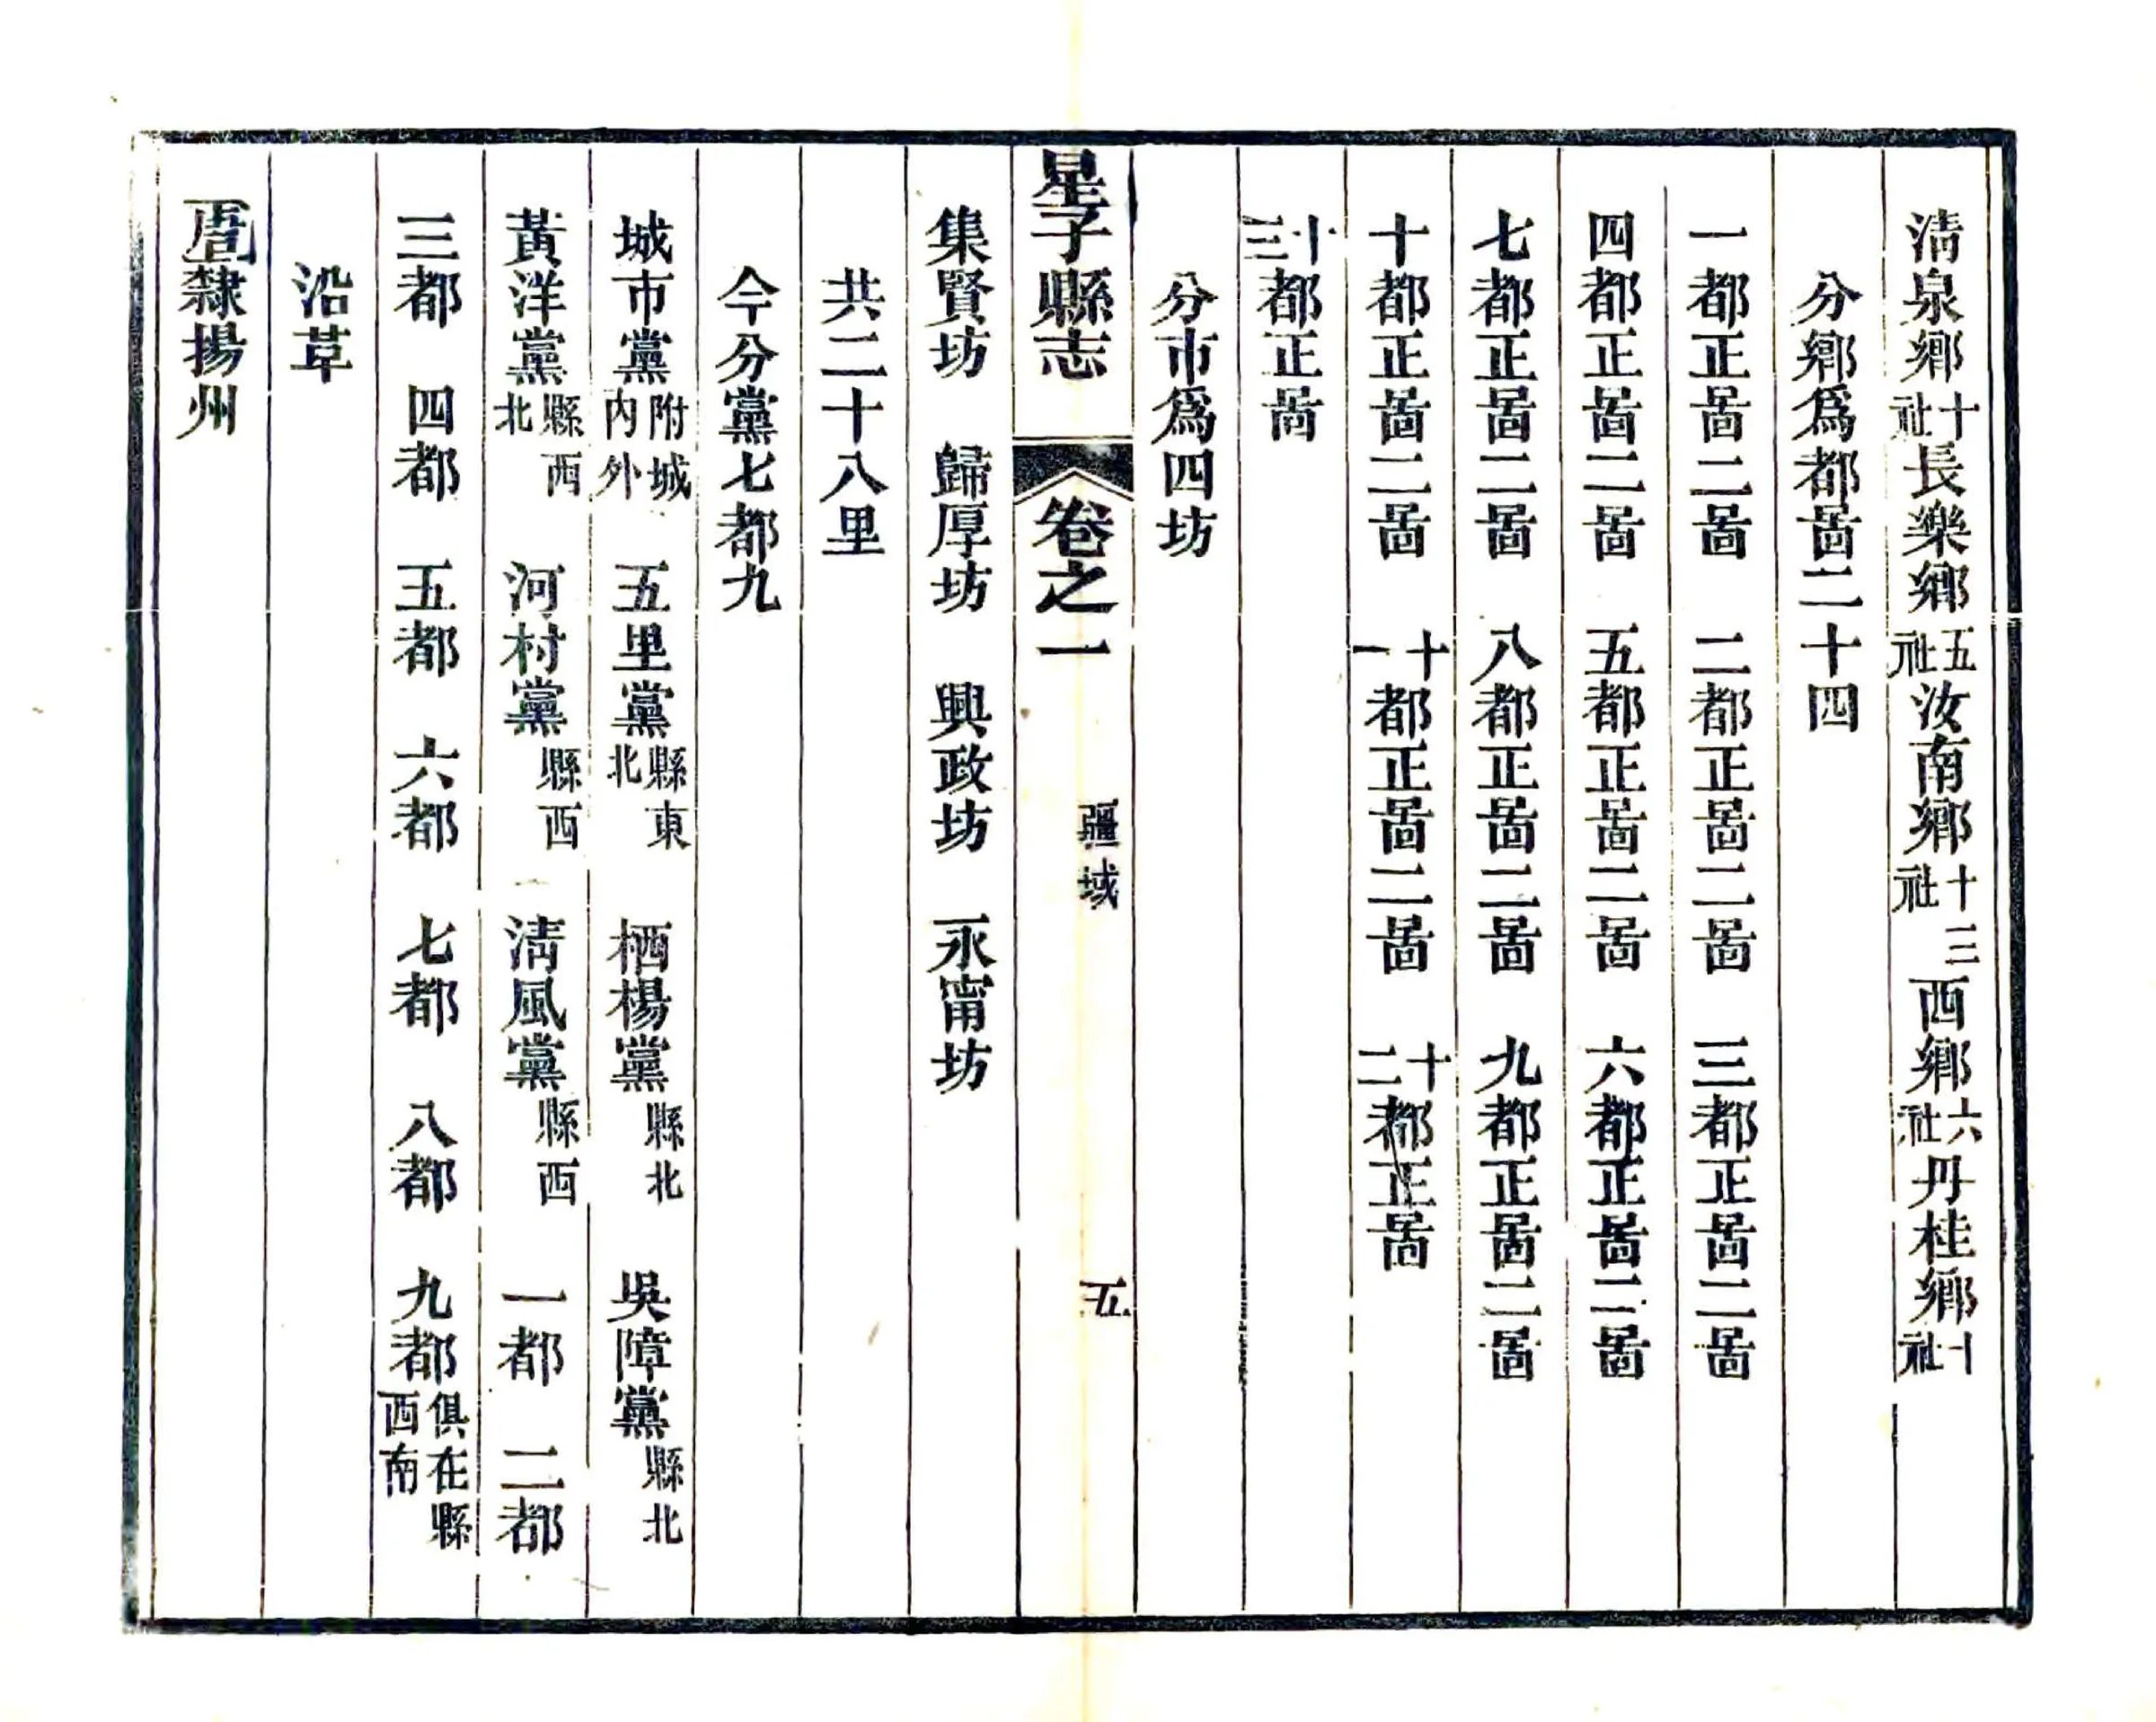 清泉鄉十社長樂鄉五社汝南鄉十三社西鄉六社丹桂鄉十社
分鄉爲都啚二十四
一都正啚二啚 二都正啚二啚 三都正啚二啚
四都正啚二啚 五都正啚二啚 六都正啚二啚
七都正啚二啚 八都正啚二啚 九都正啚二啚
十都正啚二啚 十一都正啚二啚 十二都正啚
十三都正啚
分市爲四坊
星子縣志 卷之一 疆域 五
集賢坊 歸厚坊 興政坊 永甯坊
共二十八里
今分黨七都九
城市黨附城內外 五里黨縣東北 栖楊黨縣北 吳障黨縣北
黃洋黨縣西北 河村黨縣西 清風黨縣西 一都 二都
三都 四都 五都 六都 七都 八都 九都俱在縣西南
沿革
周隸揚州